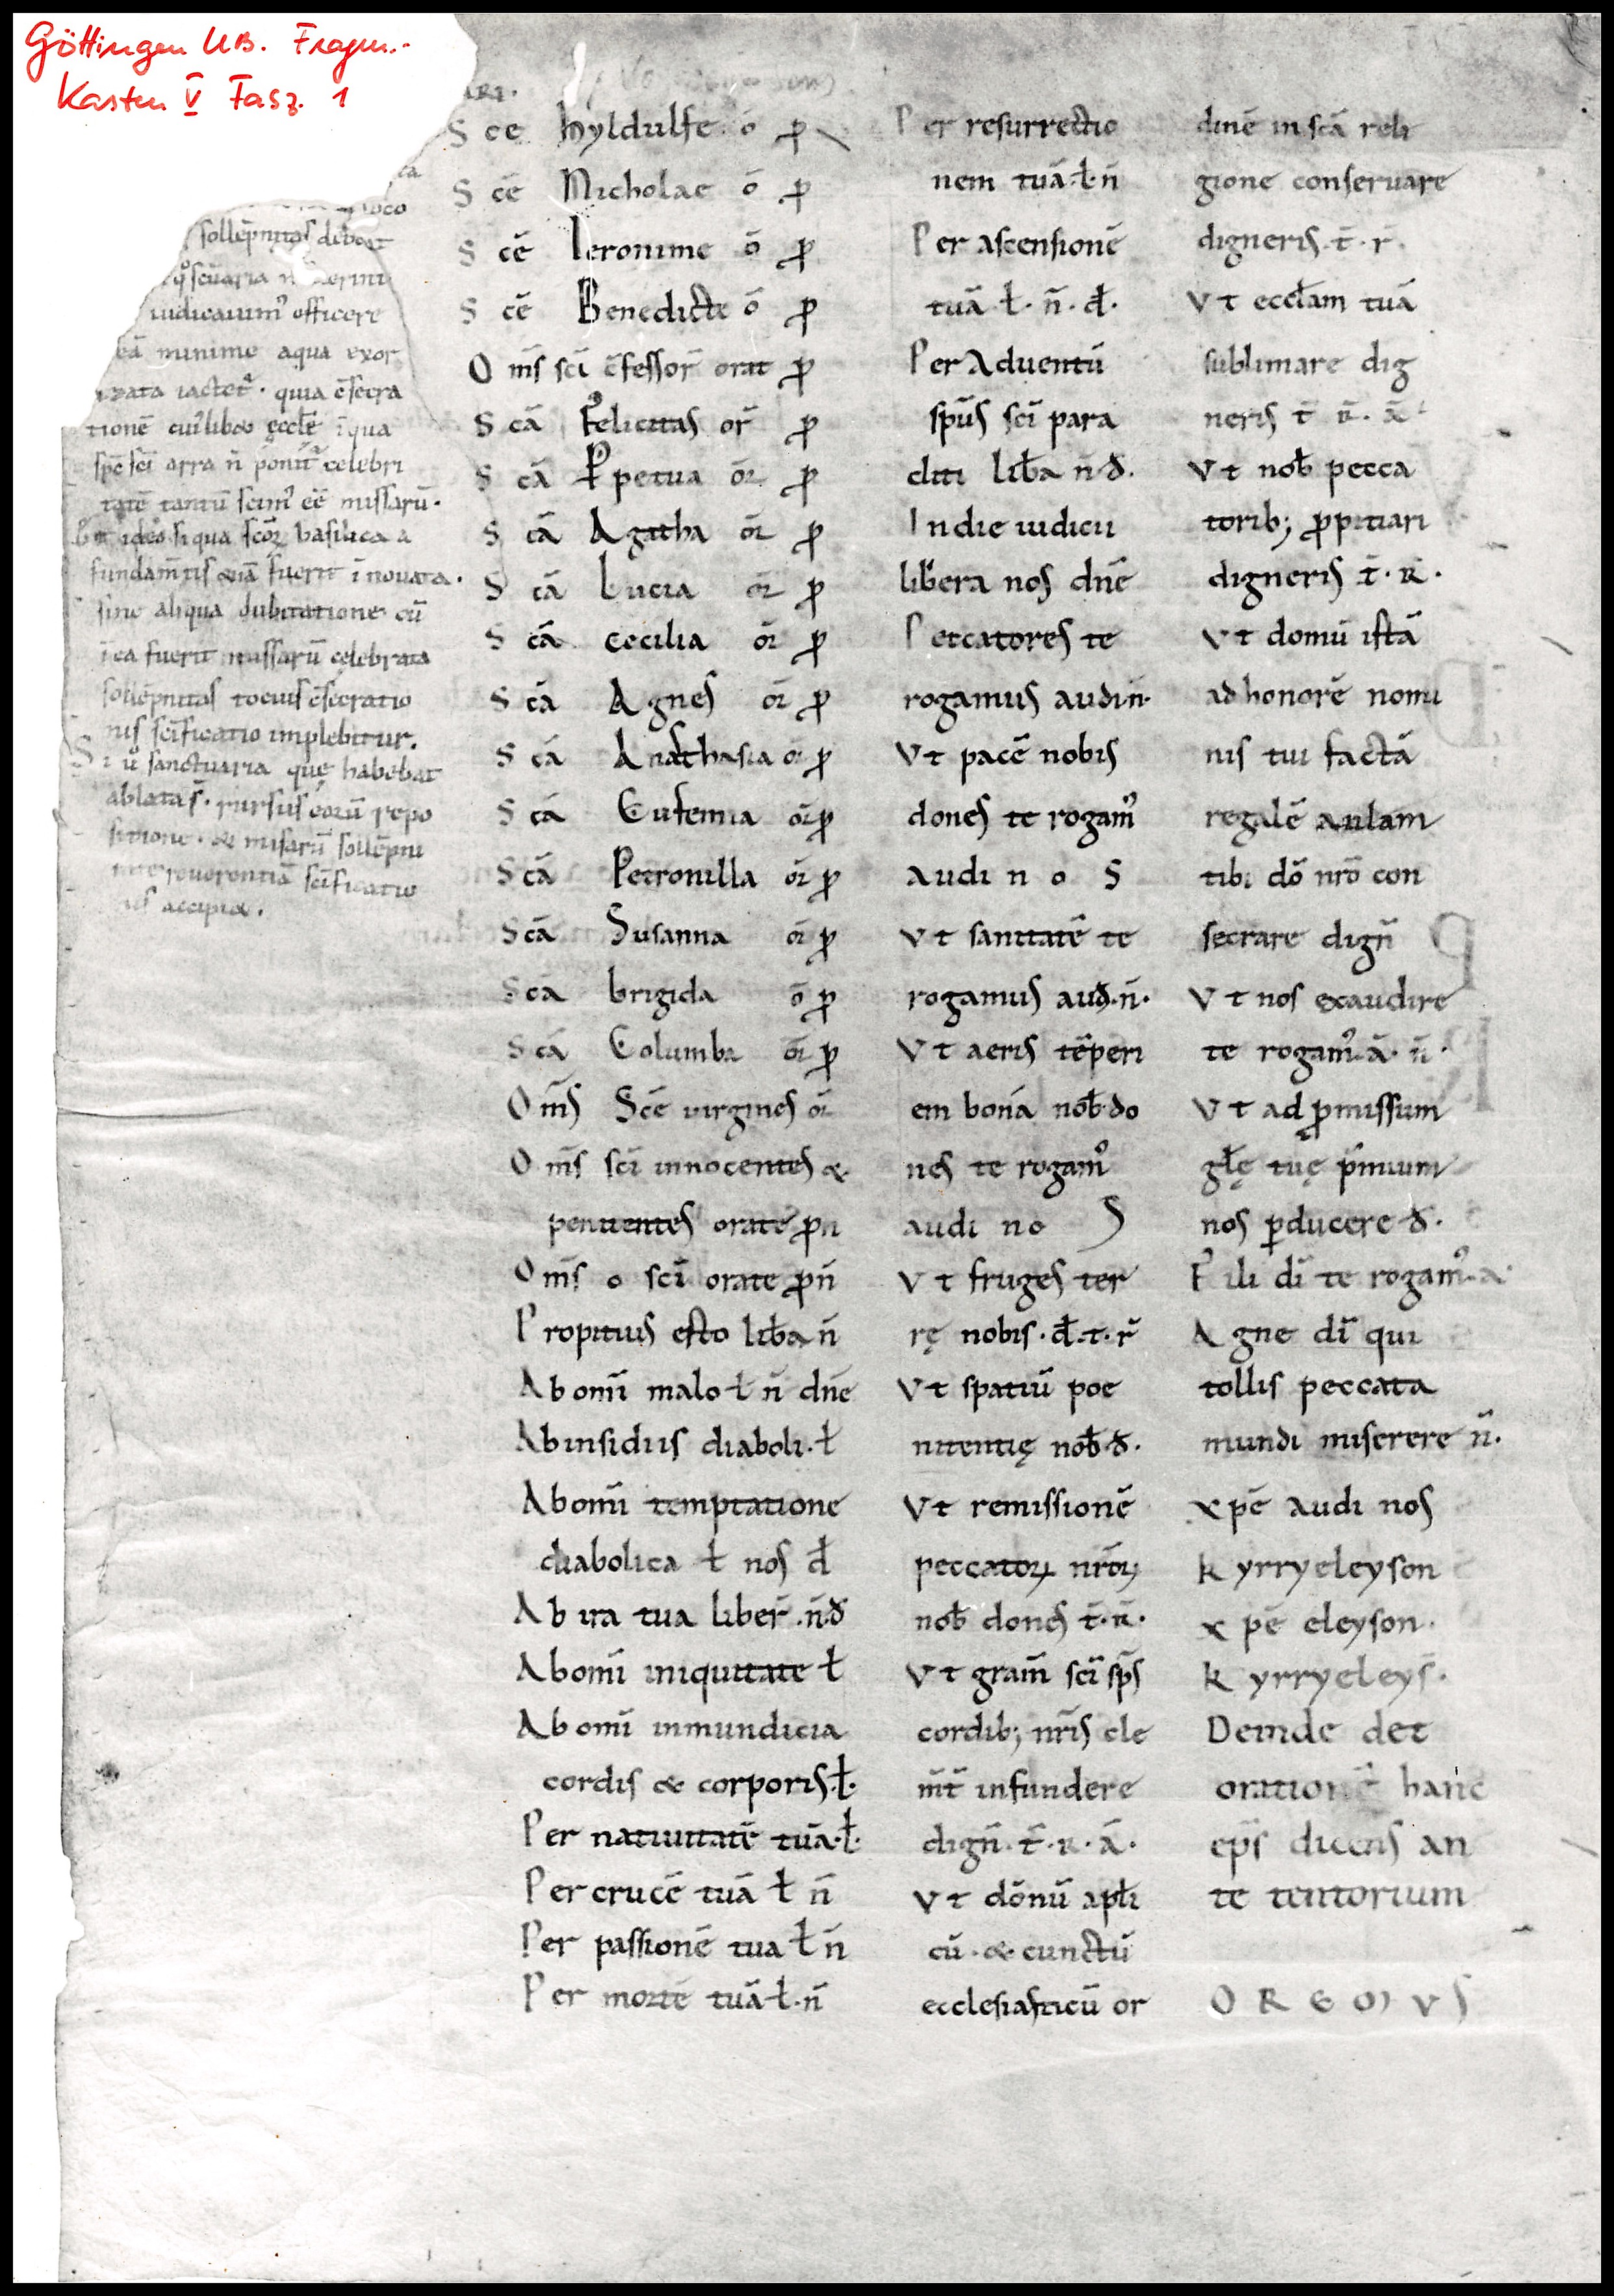 Göttingen UB. Fragm.
Kasten V Fasz. 1
sollēpnitas debeat
iudicauimꝰ officere
minime aqua exor
iactetᷣ. quia c̄secra
tionē cuiꝰlibet ęccłe īqua
spē sc̄i arra n̄ ponit᷑ celebri
tatē tantū scimꝰ eē missarū.
ideo siqua sc̄oꝝ basilica a
fundam̄tis &iā fuerit īnouata.
sine aliqua dubitatione cū
īea fuerit missarū cęlebrata
sollēpnitas tocius c̄secratio
nis sc̄ificatio implebitur.
Si ů sanctuaria quę habebat
ablatas̄. rursus eoꝝ repo
sitione. & misarū sollēpni
reuerentiā sc̄ificatio
nis accipi&.
ARI.
S ce hyldulfe ō ꝓ
S cē Nicholae ō ꝓ
S cē Ieronime ō ꝓ
S cē Benedicte ō ꝓ
O m̄s sc̄i c̄fessor̄ orat ꝓ
S cā Felicitas or̄ ꝓ
S cā Ꝑpetua or̄ ꝓ
S cā Agatha or̄ ꝓ
S cā Lucia or̄ ꝓ
S cā cecilia or̄ ꝓ
S cā Agnes or̄ ꝓ
S cā Anasthasia or̄ ꝓ
S cā Eufemia or̄ ꝓ
S cā Petronilla or̄ ꝓ
S cā Susanna or̄ ꝓ
S cā brigida ō ꝓ
S cā Columba or̄ ꝓ
O m̄s Scē uirgines or̄
O m̄s sc̄i innocentes &
penitentes orate ꝓn
O m̄s o sc̄i orate ꝓn̄
P ropitius esto lib̄a n̄
Ab omī malo ł n̄ dn̄e
Ab insidiis diaboli. ł
Ab omī temptatione
diabolica ł nos đ
Ab ira tua liber̄. n̄ đ
Ab omī iniquitate ł
Ab omī inmundicia
cordis & corporis. ł.
Per natiuitatē tuā. ł.
Per crucē tuā ł n̄
Per passionē tua ł n̄
Per mortē tuā ł. n̄
P er resurrectio
nem tuā. ł. n̄
P er ascensionē
tuā. ł. n̄. đ.
Per Aduentū
sp̄us sc̄i para
cliti lib̄a n̄ đ.
In die iudicii
lib̄era nos dn̄e
Peccatores te
rogamus audi. n̄.
Vt pacē nobis
dones te rogamꝰ
audi n o S
Vt sanitatē te
rogamus auđ. n̄.
Vt aeris tēperi
em bonā nob̄. do
nes te rogamꝰ
audi no S
Vt fruges ter
rę nobis. đ. t. r̄
Vt spatiū poe
nitentię nob̄. đ.
Vt remissionē
peccatoꝝ nr̄oꝝ
nob̄ dones t̄. R̄.
Vt gram̄ sc̄i sp̄s
cordib; nr̄is cle
m̄t infundere
dign̄. t̄. R. ā.
Vt dōnū apłi
cū. & cunctū
ecclesiasticū or
dinē in scā reli
gione conseruare
digneris. t̄. r̄.
Vt eccłam tuā
sublimare dig
neris t̄ R̄. ā
Vt nob̄ pecca
torib; ꝓpitiari
digneris t̄. R̄.
Vt domū istā
ad honorē nomi
nis tui factā
regalē aulam
tibi dō nr̄o con
secrare dign̄
Vt nos exaudire
te rogamꝰ. ā. n̄.
Vt ad ꝓmissum
głę tuę p̄mium
nos ꝑducere đ.
Fili dī te rogamꝰ. a
Agne dī qui
tollis peccata
mundi miserere n̄.
xpē audi nos
kyrryeleyson
xpē eleyson.
kyrryeleys̄.
Deinde det
orationē hanc
ep̄s dicens an
te tentorium
OREMVS